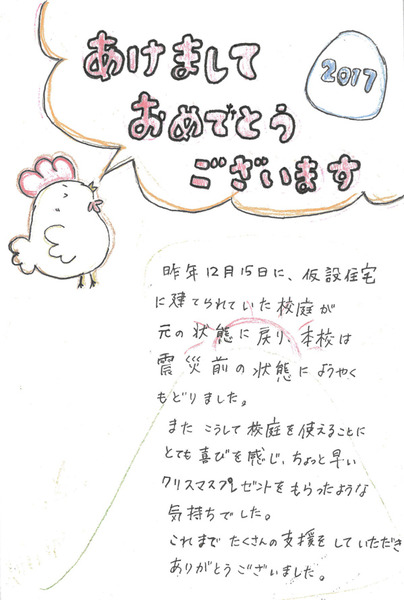 あけまして
おめでとう
ございます
2017
昨年12月15日に、仮設住宅
に建てられていた校庭が
元の状態に戻り、本校は
震災前の状態にようやく
もどりました。
また こうして校庭を使えることに
とても喜びを感じ、ちょっと早い
クリスマスプレゼントをもらったような
気持ちでした。
これまで たくさんの支援をしていただき
ありがとうございました。